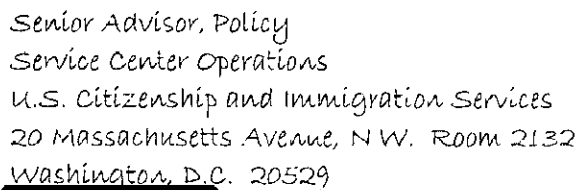 Senior Advisor, Policy
Service Center Operations
U.S. Citizenship and Immigration Services
20 Massachusetts Avenue, N W. Room 2132
Washington, D.C. 20529